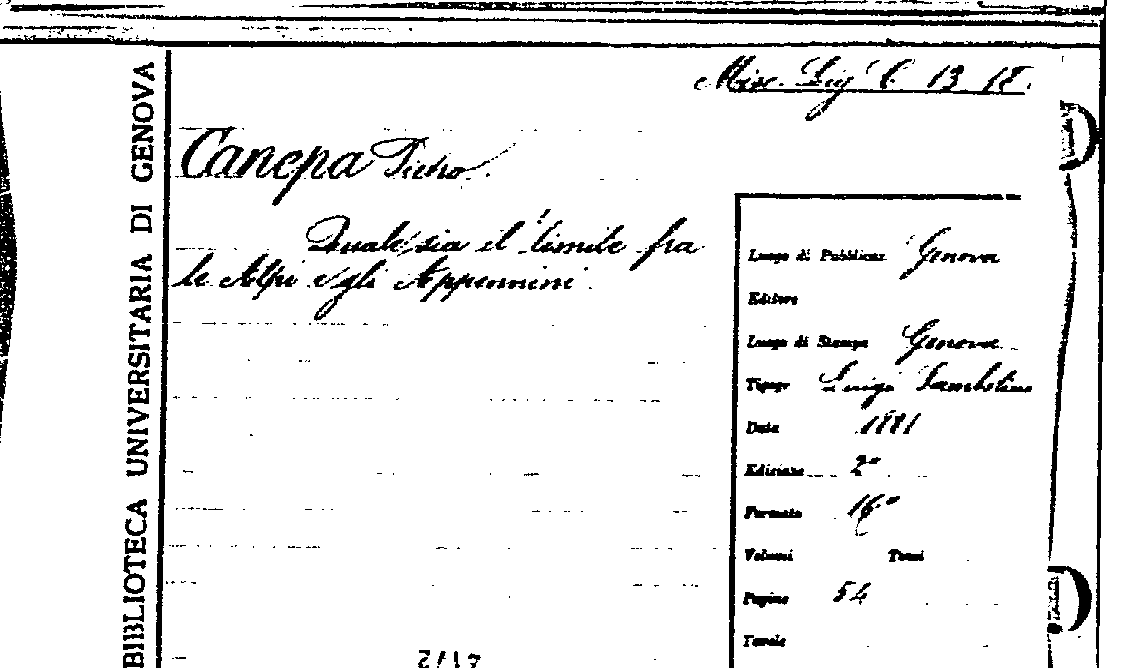 BIBLIOTECA UNIVERSITARIA DI GENOVA
Misc. Lig. C. 13. 18.
Canepa Pietro.
Quale sia il limite fra
le Alpi e gli Appennini.
Luogo di Pubblicaz. Genova
Editore
Luogo di Stampa Genova
Tipogr. Luigi Sambolino
Data 1881
Edizione 2ª
Formato 16°
Volumi Tomi
Pagine 54
Tavole